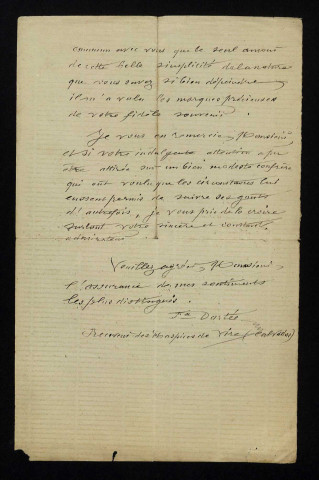 commun avec vous que le seul amour
de cette belle simplicité
que vous savez si bien dépeindre
il m'a valu les marques précieuses
de votre fidèle souvenir.
Je vous en remercie, Monsieur,
et si votre indulgente attention a pu
être attirée sur un bien modeste confrère
qui eût voulu que les circonstances lui
eussent permis de suivre ses goûts
d'autrefois, je vous prie de le croire
surtout votre sincère et constant
admirateur.
Veuillez agréer, Monsieur,
l'assurance de mes sentiments
les plus distingués.
Receveur des hospices de Vire (Calvados)